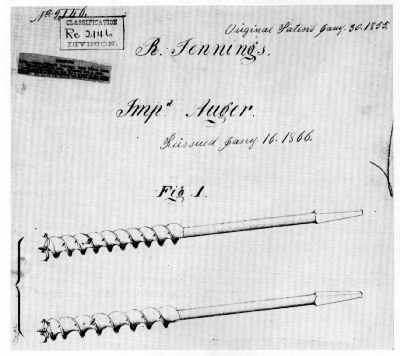 No. 2146.
CLASSIFICATION
Re 2146
DIVISION
Original Patent Jany. 30. 1855.
R. Jennings.
Impd Auger.
Reissued Jany 16. 1866.
Fig 1.